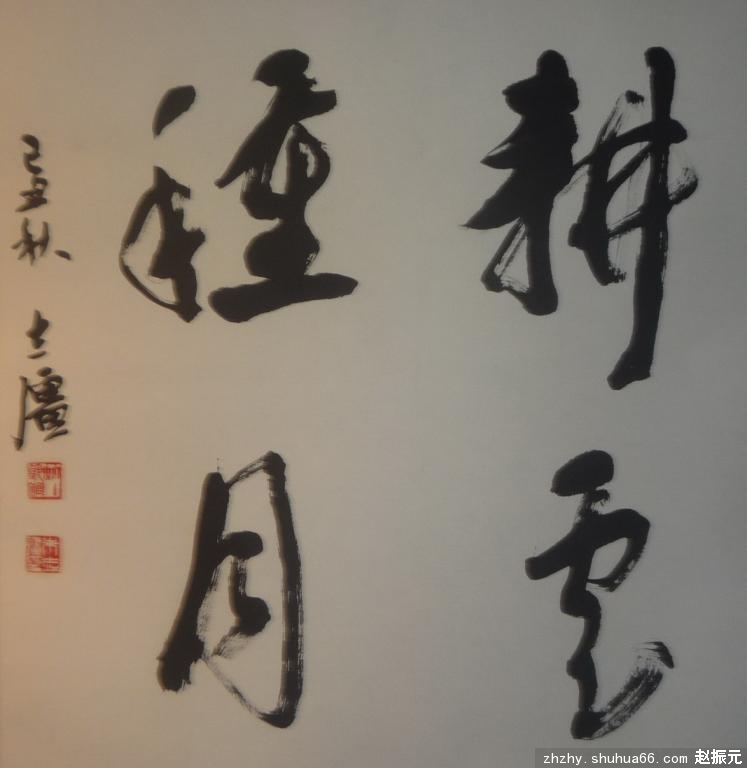 耕雲
種月
己丑秋 士廬
zhzhy.shuhua66.com 赵振元